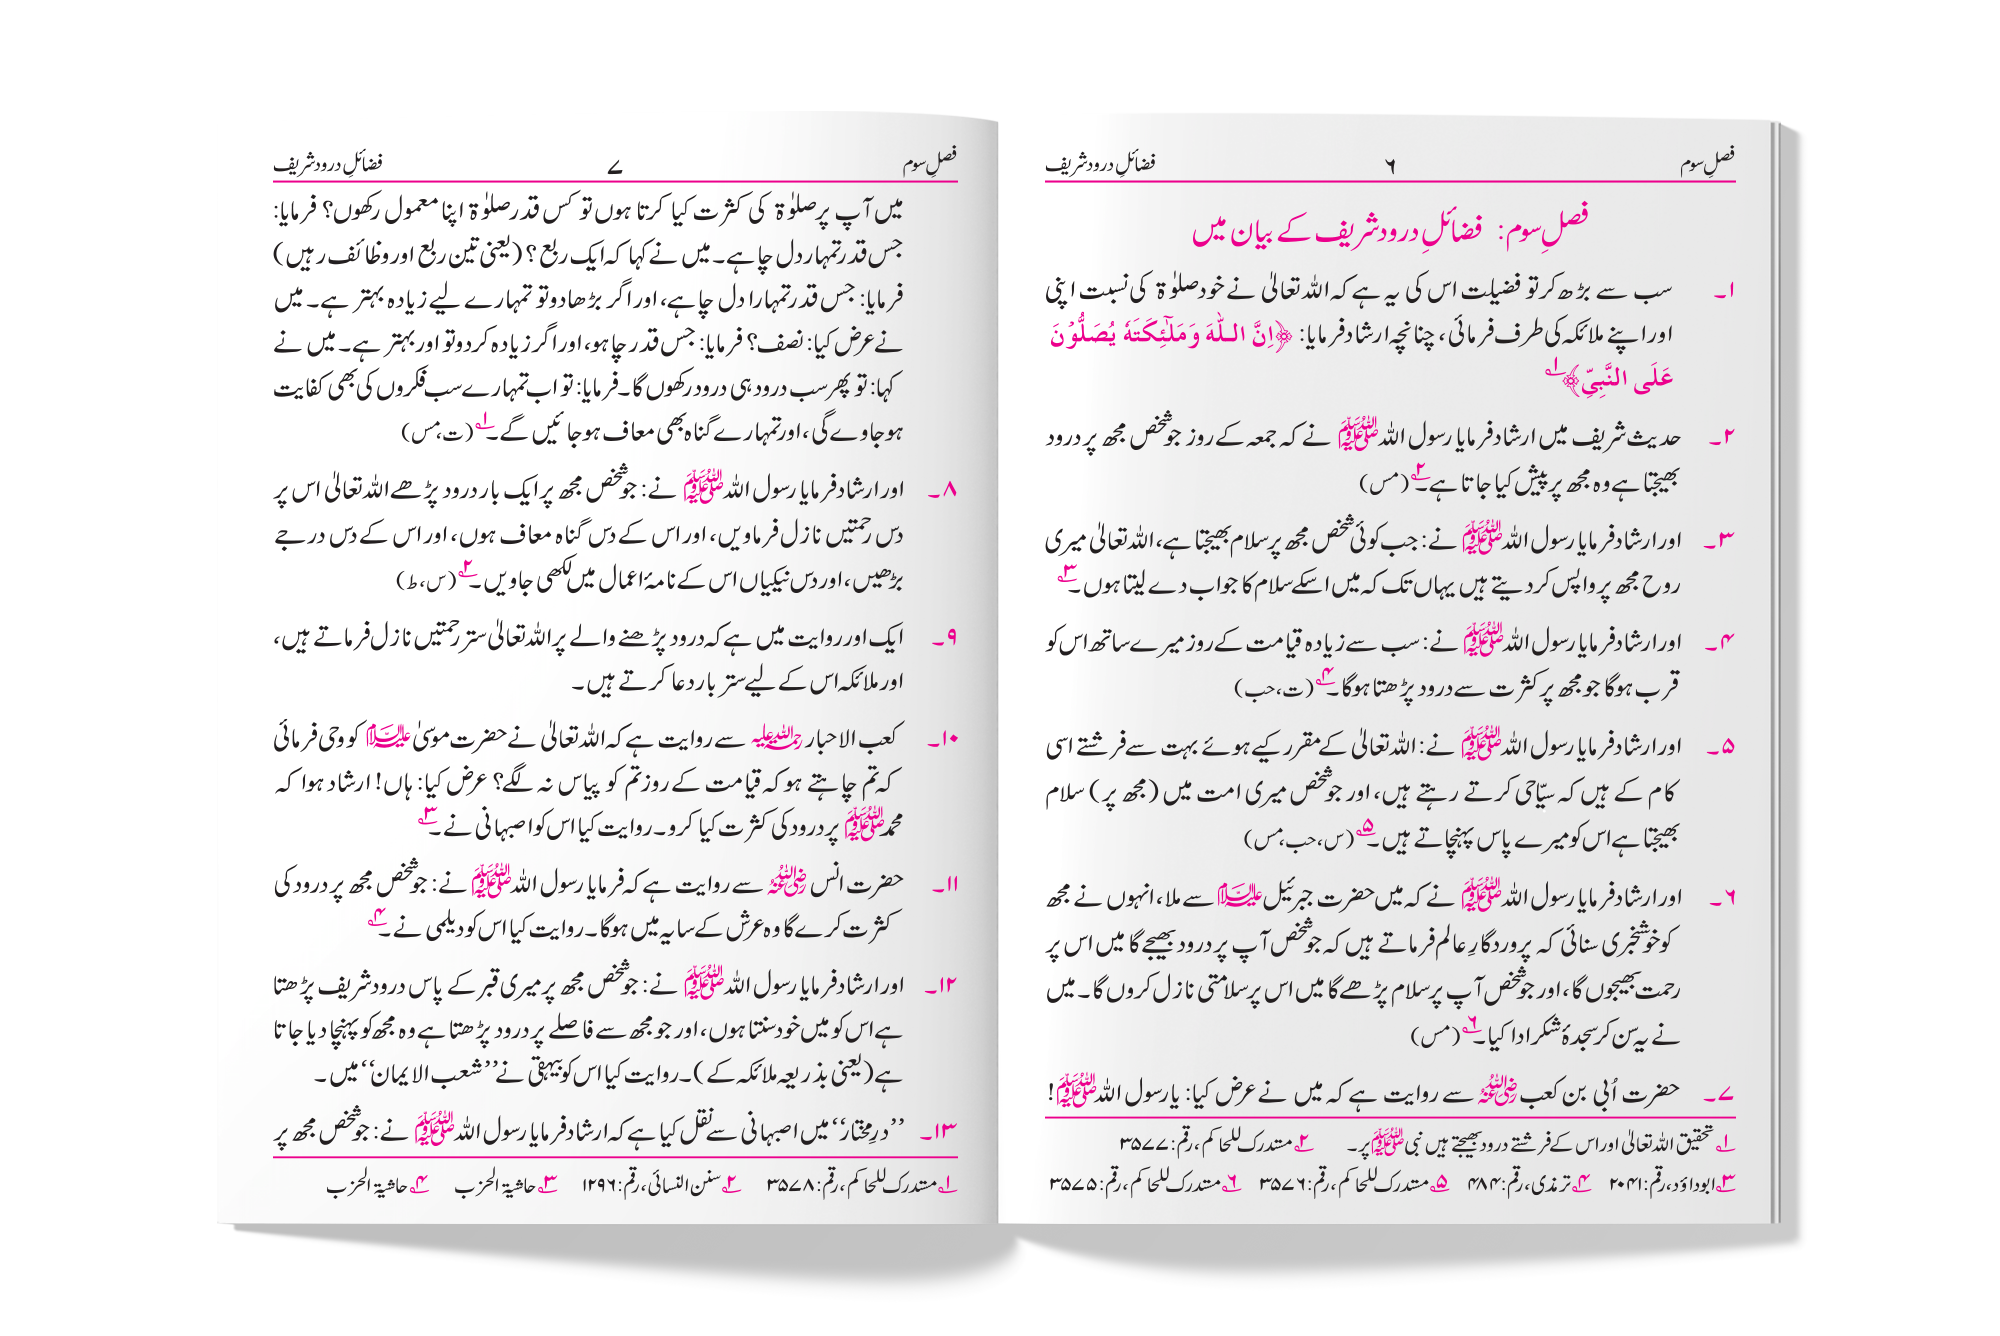 فصلِ سوم ۶ فضائلِ درود شریف
فصلِ سوم: فضائلِ درود شریف کے بیان میں
۱۔ سب سے بڑھ کر تو فضیلت اس کی یہ ہے کہ اللہ تعالیٰ نے خود صلوٰۃ کی نسبت اپنی
اور اپنے ملائکہ کی طرف فرمائی، چنانچہ ارشاد فرمایا: ﴿اِنَّ اللّٰهَ وَمَلٰٓئِكَتَهٗ يُصَلُّوْنَ
عَلَى النَّبِيِّ﴾ ۱؎
۲۔ حدیث شریف میں ارشاد فرمایا رسول اللہ ﷺ نے کہ جمعہ کے روز جو شخص مجھ پر درود
بھیجتا ہے وہ مجھ پر پیش کیا جاتا ہے۔ ۲؎ (مس)
۳۔ اور ارشاد فرمایا رسول اللہ ﷺ نے: جب کوئی شخص مجھ پر سلام بھیجتا ہے، اللہ تعالیٰ میری
روح مجھ پر واپس کردیتے ہیں یہاں تک کہ میں اسکے سلام کا جواب دے لیتا ہوں۔ ۳؎
۴۔ اور ارشاد فرمایا رسول اللہ ﷺ نے: سب سے زیادہ قیامت کے روز میرے ساتھ اس کو
قرب ہوگا جو مجھ پر کثرت سے درود پڑھتا ہوگا۔ ۴؎ (ت،حب)
۵۔ اور ارشاد فرمایا رسول اللہ ﷺ نے: اللہ تعالیٰ کے مقرر کیے ہوئے بہت سے فرشتے اسی
کام کے ہیں کہ سیّاحی کرتے رہتے ہیں، اور جو شخص میری امت میں (مجھ پر) سلام
بھیجتا ہے اس کو میرے پاس پہنچاتے ہیں۔ ۵؎ (س،حب،مس)
۶۔ اور ارشاد فرمایا رسول اللہ ﷺ نے کہ میں حضرت جبرئیل علیہ السلام سے ملا، انہوں نے مجھ
کو خوشخبری سنائی کہ پروردگارِ عالم فرماتے ہیں کہ جو شخص آپ پر درود بھیجے گا میں اس پر
رحمت بھیجوں گا، اور جو شخص آپ پر سلام پڑھے گا میں اس پر سلامتی نازل کروں گا۔ میں
نے یہ سن کر سجدۂ شکر ادا کیا۔ ۶؎ (مس)
۷۔ حضرت اُبی بن کعب رضی اللہ عنہ سے روایت ہے کہ میں نے عرض کیا: یا رسول اللہ ﷺ!
۱؎ تحقیق اللہ تعالیٰ اور اس کے فرشتے درود بھیجتے ہیں نبی ﷺ پر۔ ۲؎ مستدرک للحاکم، رقم: ۳۵۷۷
۳؎ ابوداؤد، رقم: ۲۰۴۱ ۴؎ ترمذی، رقم: ۴۸۴ ۵؎ مستدرک للحاکم، رقم: ۳۵۷۶ ۶؎ مستدرک للحاکم، رقم: ۳۵۷۵
فصلِ سوم ۷ فضائلِ درود شریف
میں آپ پر صلوٰۃ کی کثرت کیا کرتا ہوں تو کس قدر صلوٰۃ اپنا معمول رکھوں؟ فرمایا:
جس قدر تمہار دل چاہے۔ میں نے کہا کہ ایک ربع؟ (یعنی تین ربع اور وظائف رہیں)
فرمایا: جس قدر تمہارا دل چاہے، اور اگر بڑھادو تو تمہارے لیے زیادہ بہتر ہے۔ میں
نے عرض کیا: نصف؟ فرمایا: جس قدر چاہو، اور اگر زیادہ کردو تو اور بہتر ہے۔ میں نے
کہا: تو پھر سب درود ہی درود رکھوں گا۔ فرمایا: تو اب تمہارے سب فکروں کی بھی کفایت
ہوجاوے گی، اور تمہارے گناہ بھی معاف ہوجائیں گے۔ ۱؎ (ت،مس)
۸۔ اور ارشاد فرمایا رسول اللہ ﷺ نے: جو شخص مجھ پر ایک بار درود پڑھے اللہ تعالیٰ اس پر
دس رحمتیں نازل فرماویں، اور اس کے دس گناہ معاف ہوں، اور اس کے دس درجے
بڑھیں، اور دس نیکیاں اس کے نامۂ اعمال میں لکھی جاویں۔ ۲؎ (س،ط)
۹۔ ایک اور روایت میں ہے کہ درود پڑھنے والے پر اللہ تعالیٰ ستر رحمتیں نازل فرماتے ہیں،
اور ملائکہ اس کے لیے ستر بار دعا کرتے ہیں۔
۱۰۔ کعب الاحبار رحمۃ اللہ علیہ سے روایت ہے کہ اللہ تعالیٰ نے حضرت موسیٰ علیہ السلام کو وحی فرمائی
کہ تم چاہتے ہو کہ قیامت کے روز تم کو پیاس نہ لگے؟ عرض کیا: ہاں! ارشاد ہوا کہ
محمد ﷺ پر درود کی کثرت کیا کرو۔ روایت کیا اس کو اصبہانی نے۔ ۳؎
۱۱۔ حضرت انس رضی اللہ عنہ سے روایت ہے کہ فرمایا رسول اللہ ﷺ نے: جو شخص مجھ پر درود کی
کثرت کرے گا وہ عرش کے سایہ میں ہوگا۔ روایت کیا اس کو دیلمی نے۔ ۴؎
۱۲۔ اور ارشاد فرمایا رسول اللہ ﷺ نے: جو شخص مجھ پر میری قبر کے پاس درود شریف پڑھتا
ہے اس کو میں خود سنتا ہوں، اور جو مجھ سے فاصلے پر درود پڑھتا ہے وہ مجھ کو پہنچا دیا جاتا
ہے (یعنی بذریعہ ملائکہ کے)۔ روایت کیا اس کو بیہقی نے ’’شعب الایمان‘‘ میں۔
۱۳۔ ’’درِ مختار‘‘ میں اصبہانی سے نقل کیا ہے کہ ارشاد فرمایا رسول اللہ ﷺ نے: جو شخص مجھ پر
۱؎ مستدرک للحاکم، رقم: ۳۵۷۸ ۲؎ سنن النسائی، رقم: ۱۲۹۶ ۳؎ حاشیۃ الحزب ۴؎ حاشیۃ الحزب